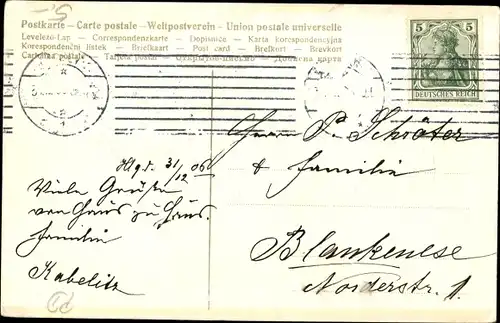 -.5
Postkarte — Carte postale — Weltpostverein — Union postale universelle
Levelező-Lap — Correspondenzkarte — Dopisnice — Karta korespondencyjna
Korespondenční lístek — Briefkaart — Post card — Brefkort — Brevkort
Cartolina postale — Tarjeta postal — Открытое письмо — Дописна карта
5 5
DEUTSCHES REICH
Herrn P. Schröter
& Familie
Blankenese
Norderstr. 1.
Hbg. d. 31/12 06
Viele Grüße
von Haus zu Haus.
Familie
Kabelitz